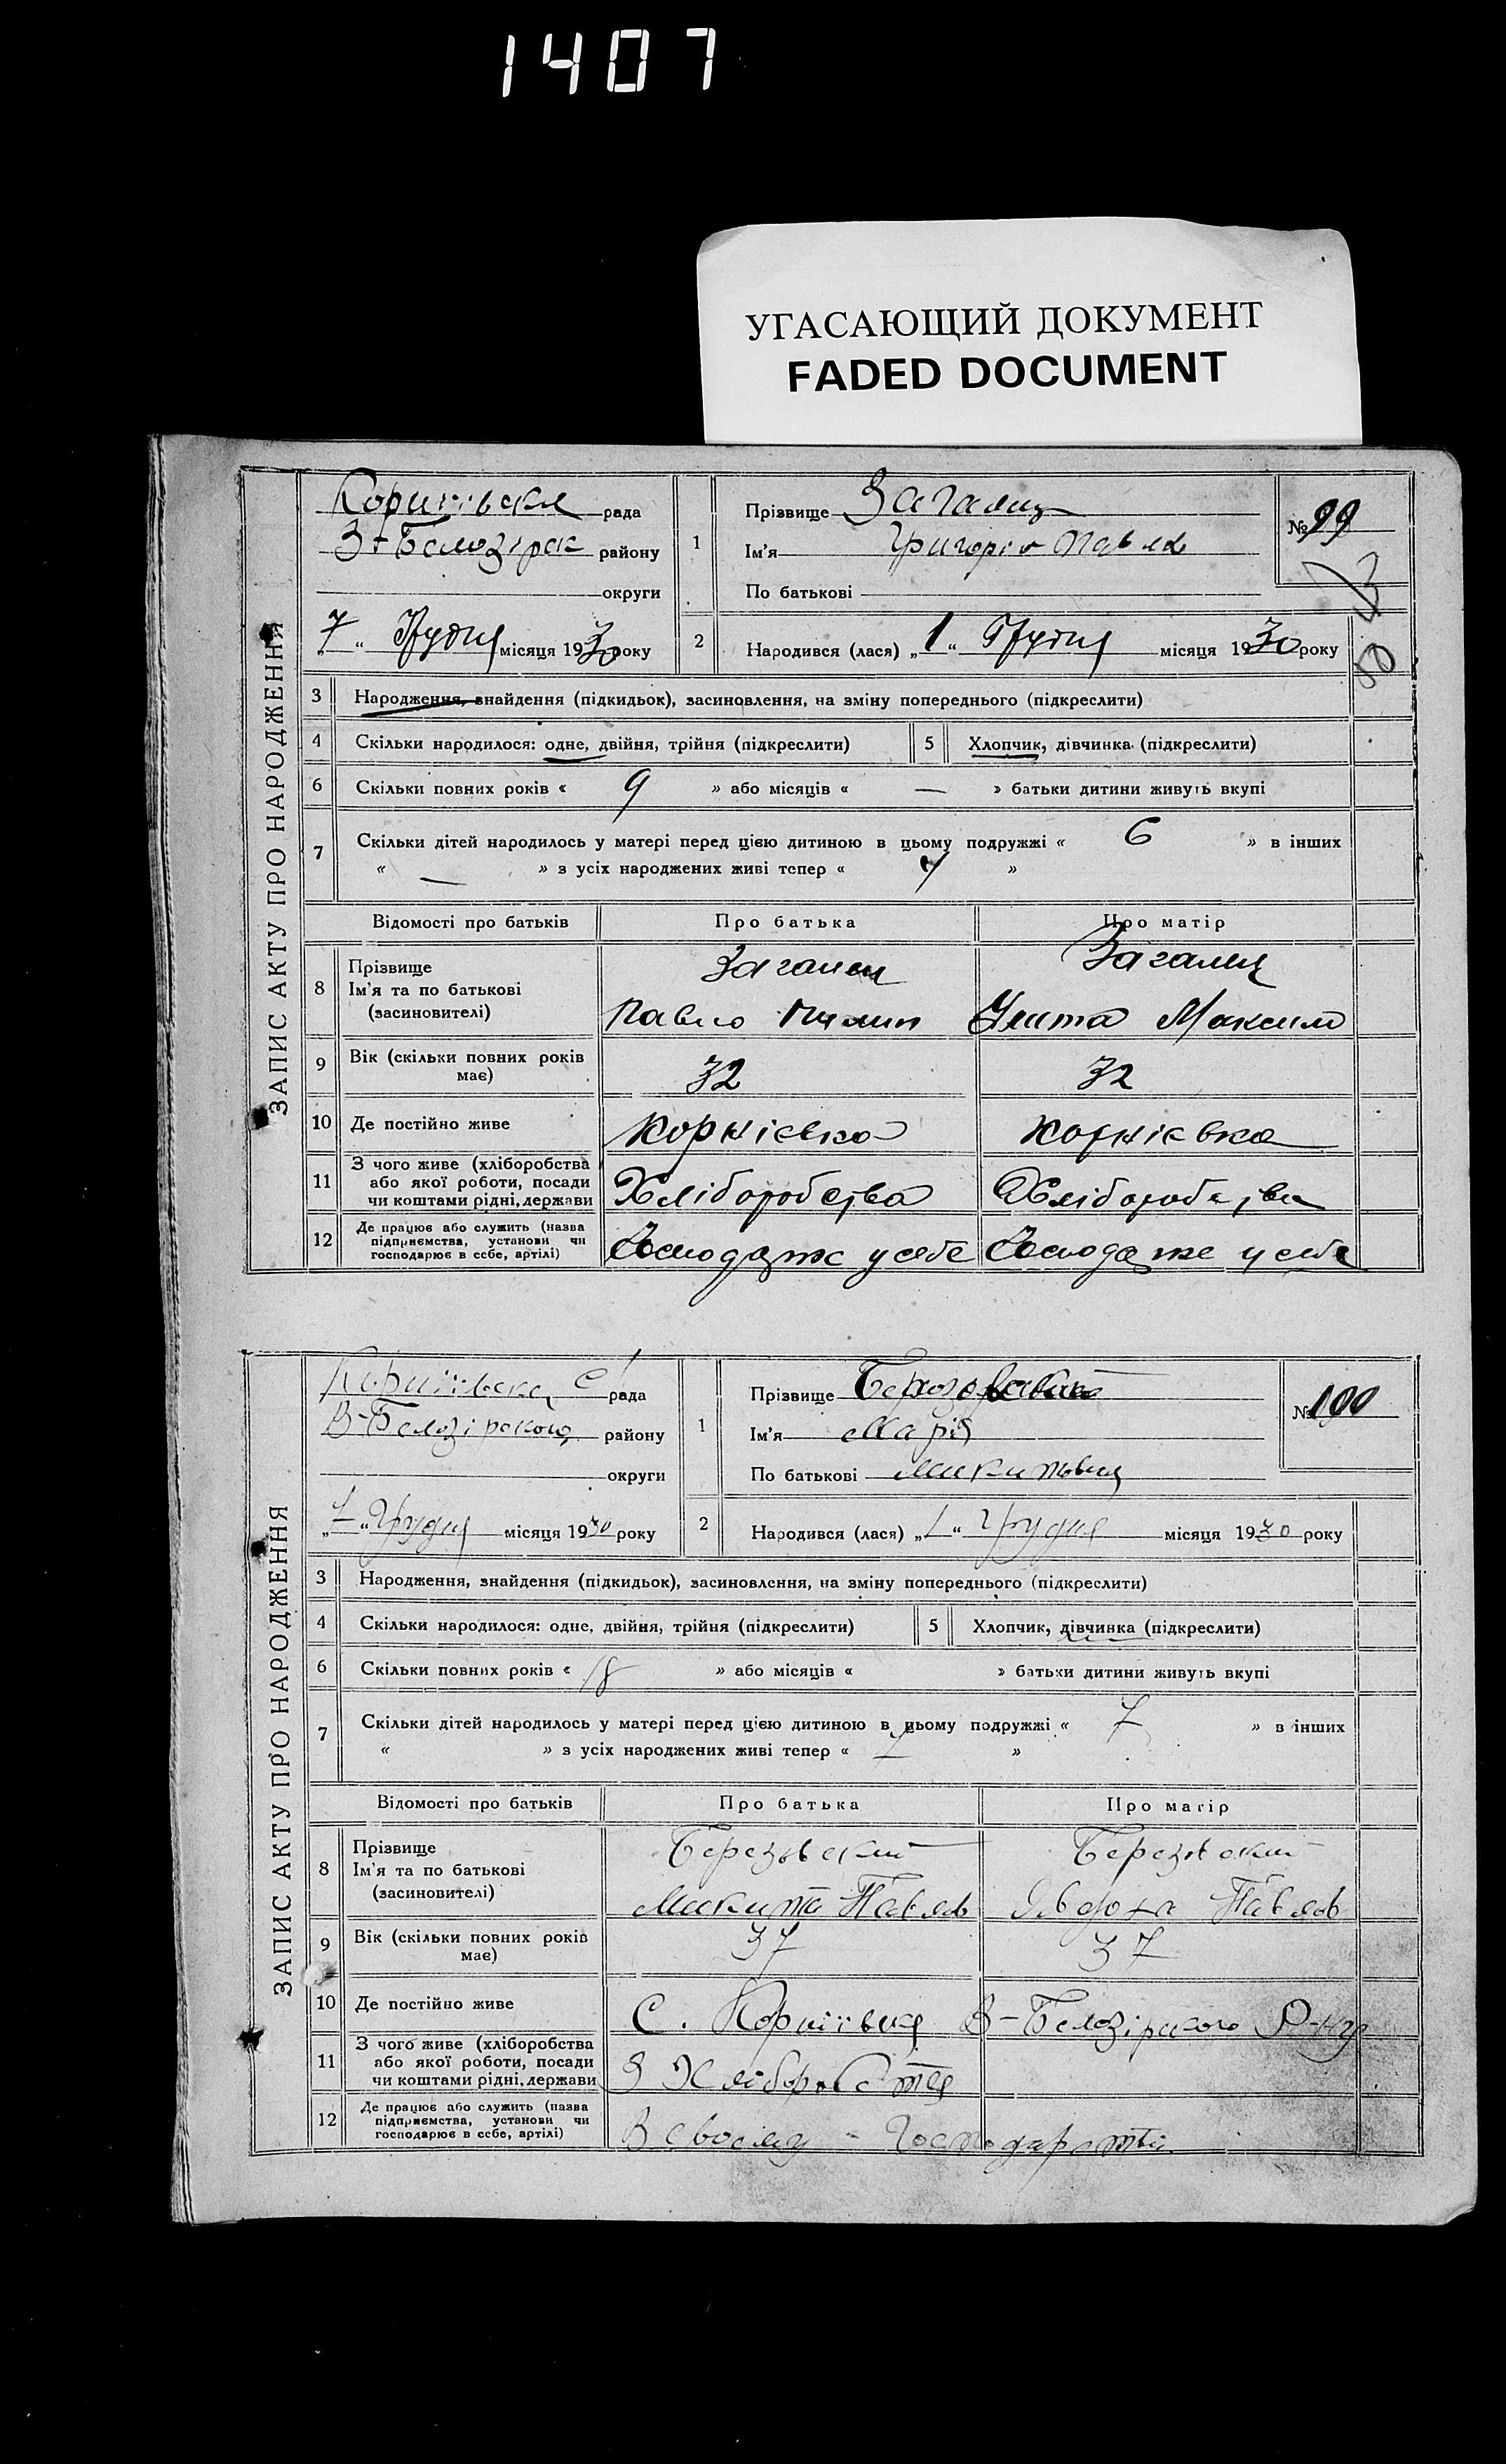 1407
УГАСАЮЩИЙ ДОКУМЕНТ
FADED DOCUMENT
ЗАПИС АКТУ ПРО НАРОДЖЕННЯ
рада
району
округи
7 " Грудня місяця 1930 року
1
Прізвище
Ім'я Григорій Павлов
По батькові
№ 99
2
Народився (лася) „1 “ Грудня місяця 1930 року
3 Народження, знайдення (підкидьок), засиновлення, на зміну попереднього (підкреслити)
4 Скільки народилося: одне, двійня, трійня (підкреслити) 5 Хлопчик, дівчинка (підкреслити)
6 Скільки повних років « 9 » або місяців « — » батьки дитини живуть вкупі
7 Скільки дітей народилось у матері перед цією дитиною в цьому подружжі « 6 » в інших
« — » з усіх народжених живі тепер « »
Відомості про батьків Про батька Про матір
8 Прізвище
Ім'я та по батькові
(засновителі)
Павло
Максим
9 Вік (скільки повних років має) 32 32
10 Де постійно живе Корнієвка Корнієвка
11 З чого живе (хліборобства або якої роботи, посади чи коштами рідні, держави Хліборобства Хліборобства
12 Де працює або служить (назва підприємства, установи чи господарює в себе, артілі) у себе у себе
ЗАПИС АКТУ ПРО НАРОДЖЕННЯ
Корніївська С/рада
В-Белозірського району
округи
Грудня місяця 1930 року
1
Прізвище
Ім'я Марія
По батькові Микитівна
№ 100
2
Народився (лася) „1 “ Грудня місяця 1930 року
3 Народження, знайдення (підкидьок), засиновлення, на зміну попереднього (підкреслити)
4 Скільки народилося: одне, двійня, трійня (підкреслити) 5 Хлопчик, дівчинка (підкреслити)
6 Скільки повних років « 18 » або місяців « » батьки дитини живуть вкупі
7 Скільки дітей народилось у матері перед цією дитиною в цьому подружжі « 7 » в інших
« » з усіх народжених живі тепер « »
Відомості про батьків Про батька Про матір
8 Прізвище
Ім'я та по батькові
(засновителі)
Березовский
Микита Павлов Павлов
9 Вік (скільки повних років має) 37 37
10 Де постійно живе С. Корніївка В-Белозірського Р-ну
11 З чого живе (хліборобства або якої роботи, посади чи коштами рідні, держави З Хліборобства
12 Де працює або служить (назва підприємства, установи чи господарює в себе, артілі) В своему Господарстві